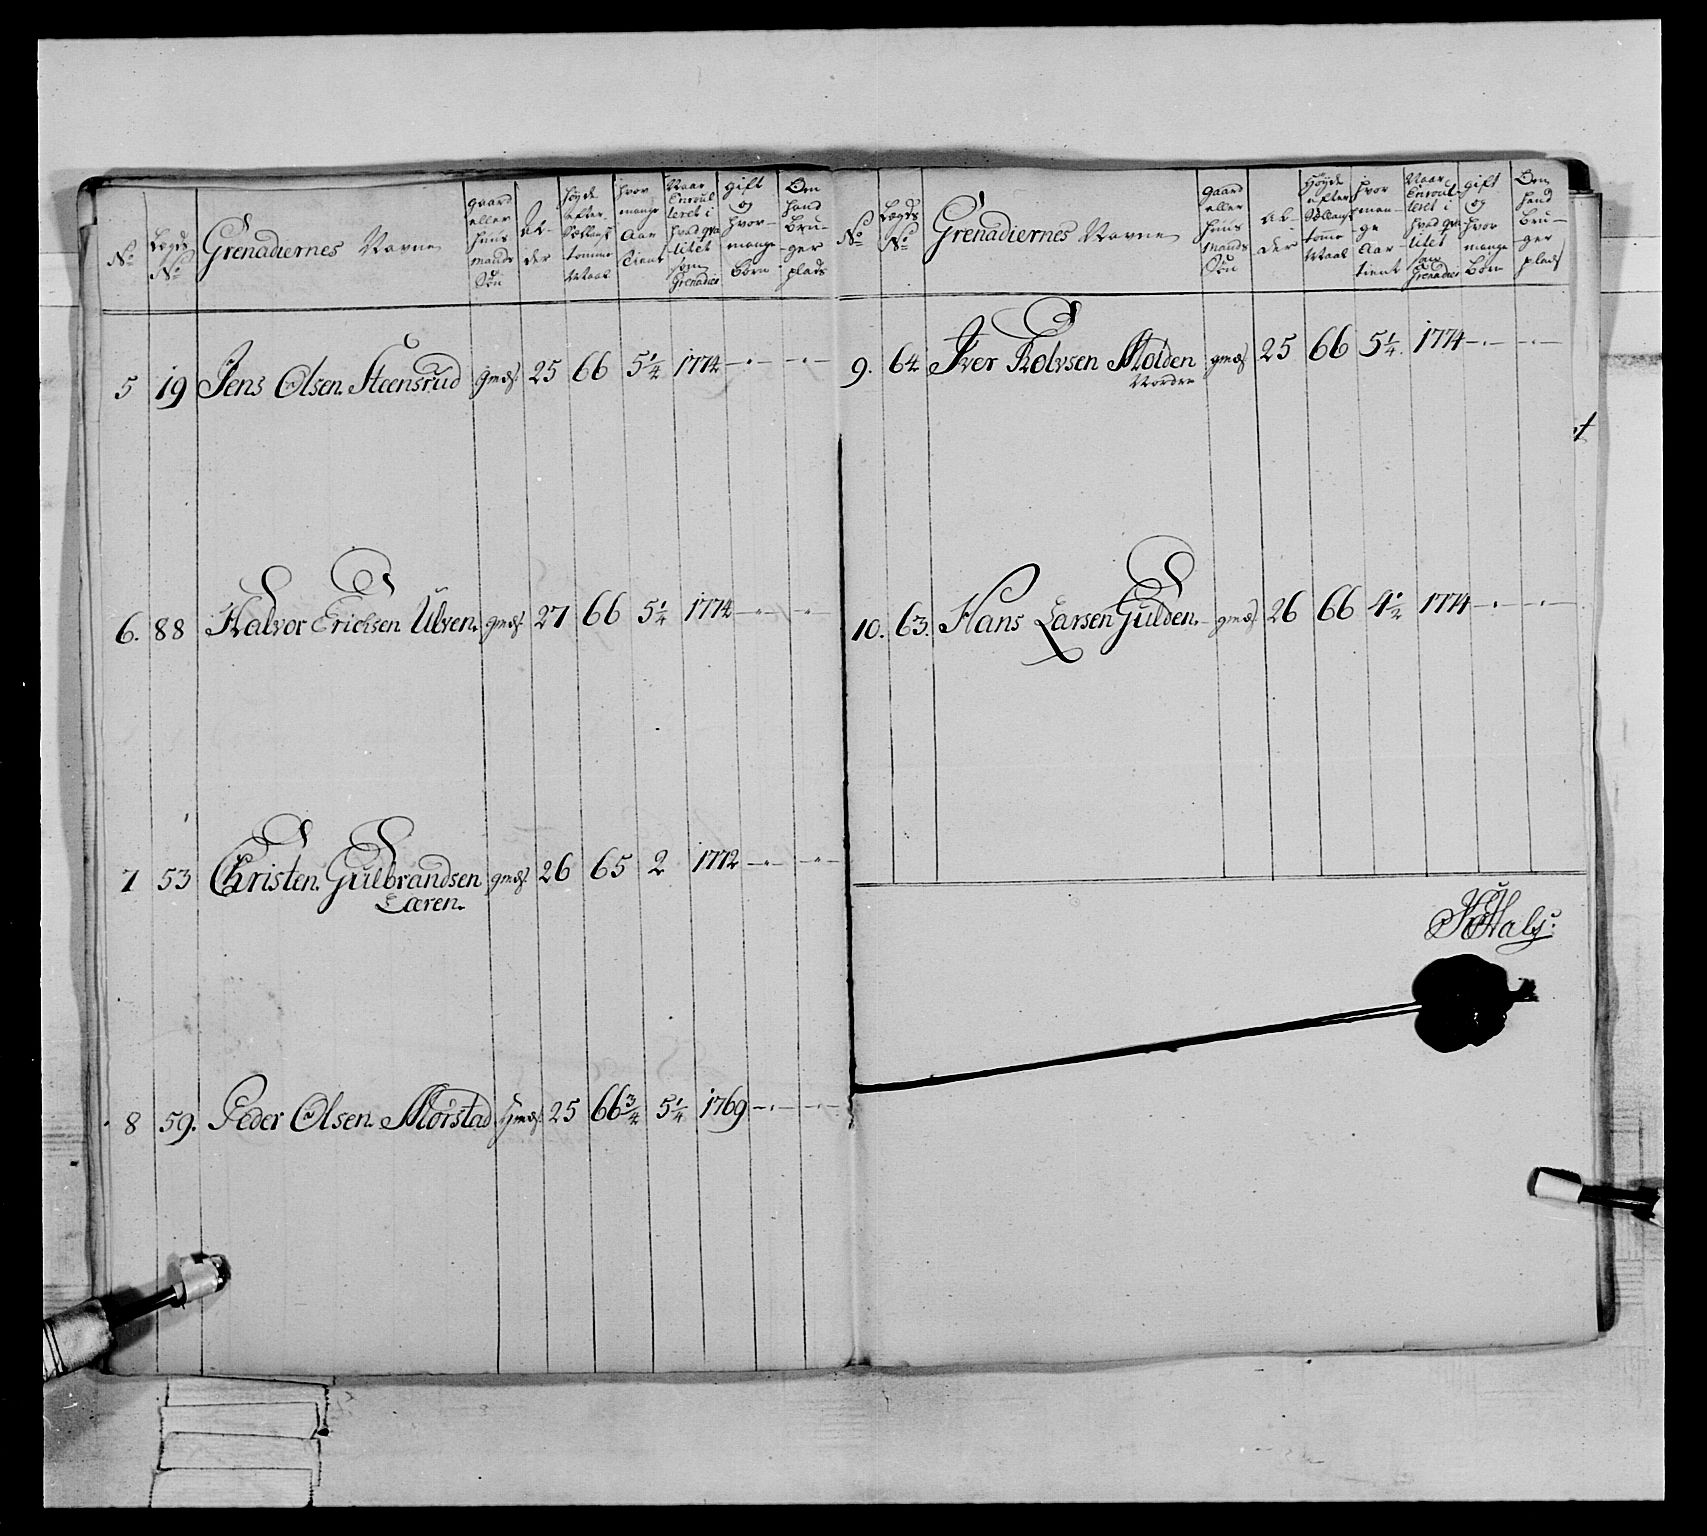 No | Lægds No | Grenadiernes Navne | gaard eller huus mands Søn | Al- der | Høyde efter Sællands tomme Maal | hvor mange Aar Tient | Naar Enroul- leret i hvad qva- litet som Grenadier | gift og hvor- mange börn | Om hand bru- ger plads
5 | 19 | Jens Olsen Steensrud | gmds | 25 | 66 | 5¼ | 1774 | — | —
6. | 88 | Halvor Erichsen Ulven. | gmds | 27 | 66 | 5¼ | 1774 | — | —
7 | 53 | Christen Gulbrandsen | gmds | 26 | 65 | 2 | 1772 | — | —
Læren.
8 | 59. | Peder Olsen Mörstad | gmds | 25 | 66¾ | 5¼ | 1769 | — | —
No | Lægds No | Grenadiernes Navne | gaard eller huus mands Søn | Al- der | Høyde efter Sællands tomme Maal | hvor man- ge Aar tient | Naar Enroul- leret i hvad qva- litet som Grenadier | gift og hvor mange börn | Om hand bru- ger plads
9. | 64 | Iver Rolvsen Molden | gmds | 25 | 66 | 5¼. | 1774 | — | —
Nordre
10. | 63. | Hans Larsen Gulden. | gmds | 26 | 66 | 4½ | 1774 | — | —